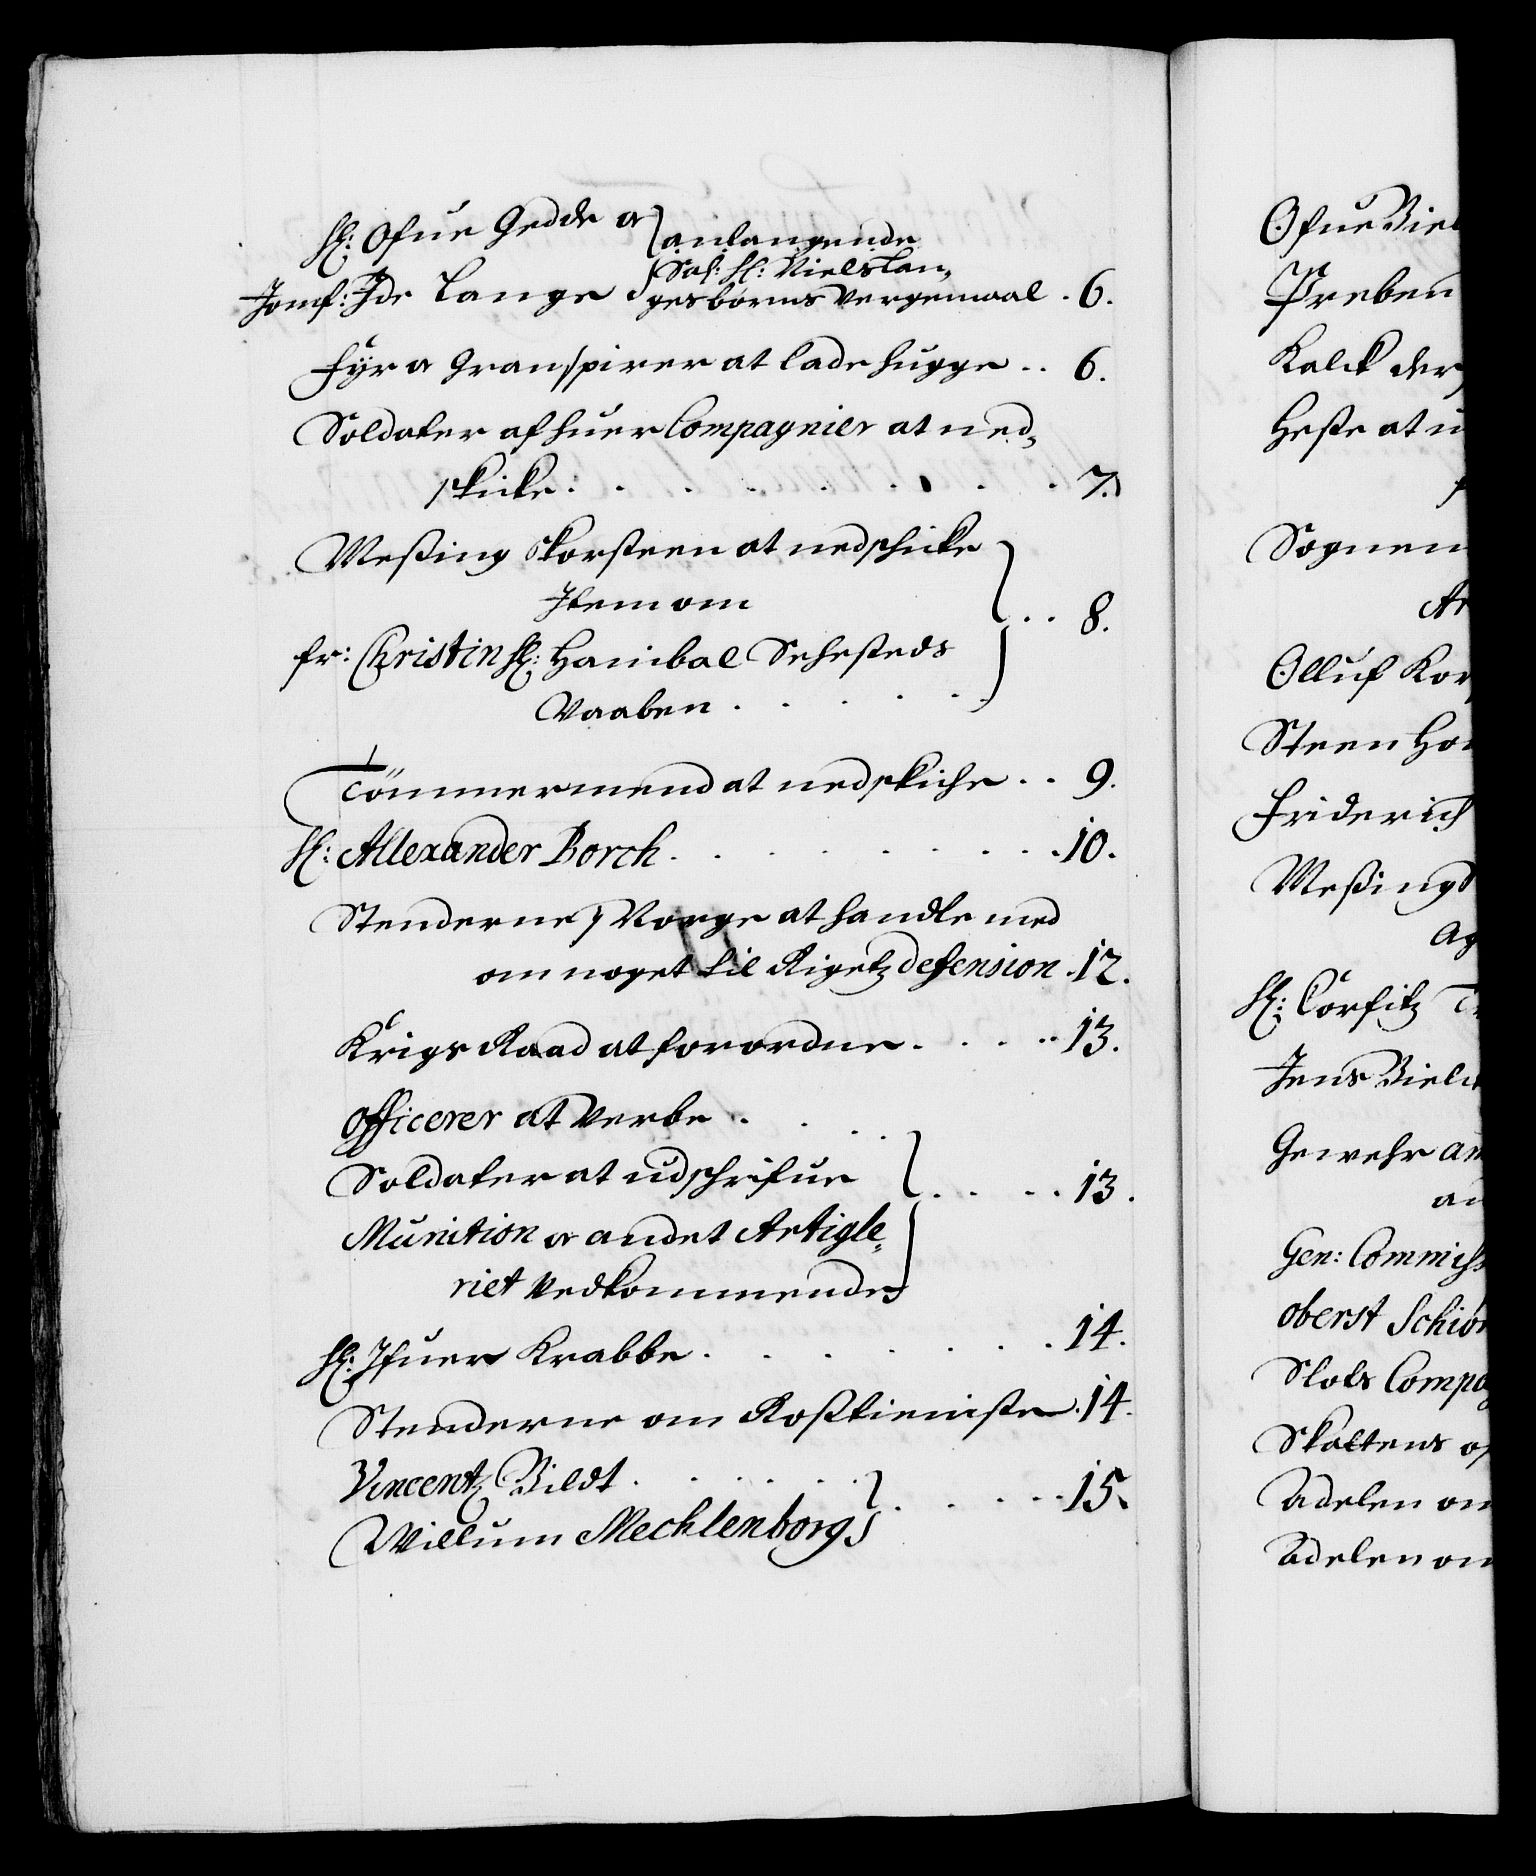 H: Ofue Gedde oc
anlangende
Sal: H: Niels Lan,
Jomf: Ide Lange
ges børns Vergemaal . 6.
Fÿr oc Granspirer at lade hugge .. 6.
Soldater af huer Compagnier at ned,
skicke . . . . . . . . . 7.
Meßing Skorsteen at nedschicke
Item om .. 8.
fr: Christin H: Hanibal Sehesteds
Vaaben . . . . .
Tömmermend at nedskiche .. 9.
H: Allexander Borch . . . . . . . . 10.
Stenderne i Norge at handle med
om noget til Rigetz defension . 12.
Krigs Raad at forordne . . . .. 13.
Officerer at Verbe . . .
Soldater at udschrifue
. . . . 13.
Munition oc andet Artigle,
riet Vedkommende
H: Ifuer Krabbe . . . . . . . 14.
Stenderne om Roßtienniste . 14.
Vincentz Bildt . . . . . .
. . . .. 15.
Willum Mecklenborg
Ofue Biel
Preben
Kalck der
Heste at u
Sognen
Ar
Olluf Kor
Steen Ho
Friderich
Meßings
ag
H: Corfitz T
Jens Biel
Gewehr am
an
Gen: Commiss
Oberst Schiör
Slots Compag
Skattens
Adelen om
Adelen om